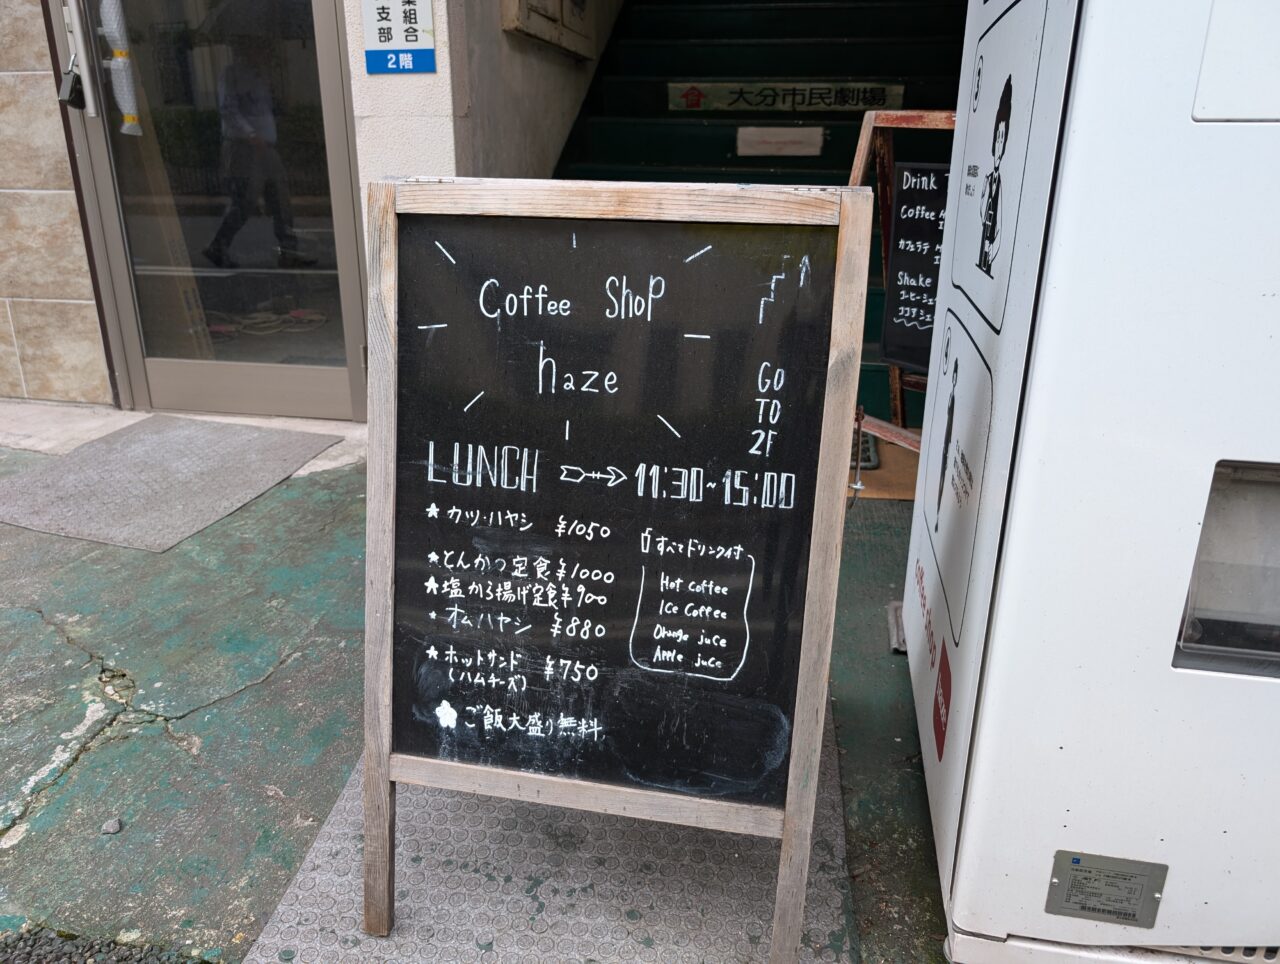 業組合
支部
2階
大分市民劇場
Drink
Coffee
カフェラテ
Shake
コーヒーシェ
ココアシェ
Coffee Shop
haze
GO
TO
2F
LUNCH 11:30~15:00
★カツ・ハヤシ ¥1050
★とんかつ定食¥1000
★塩から揚げ定食¥900
★オムハヤシ ¥880
★ホットサンド ¥750
(ハムチーズ)
ご飯大盛り無料
すべてドリンク付
Hot coffee
Ice Coffee
Orange juce
Apple juce
③
④